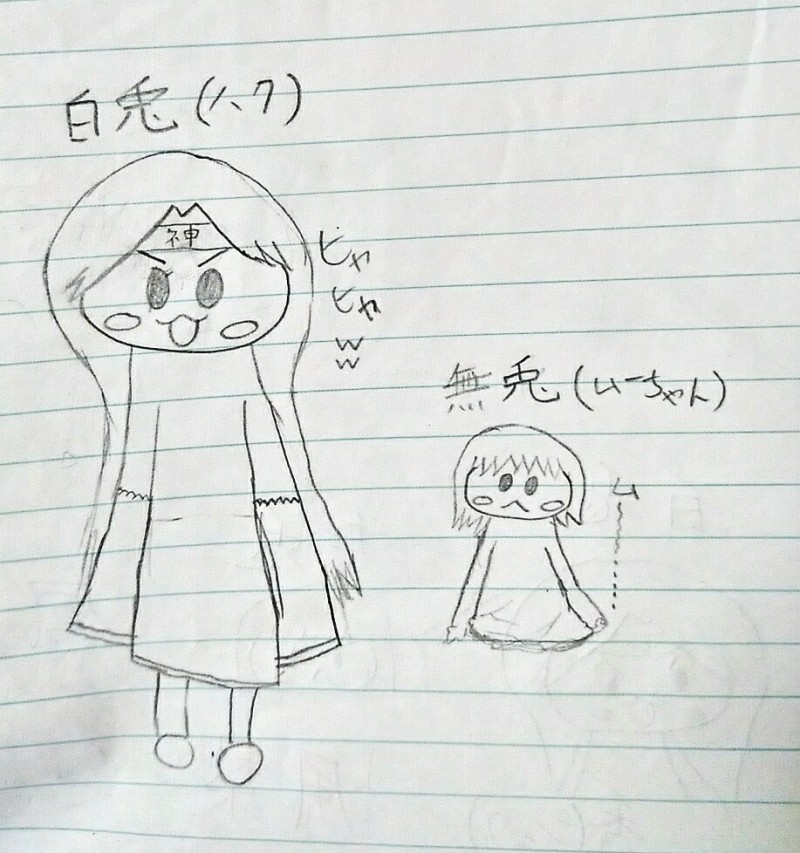 白兎(ハク)
神
ヒャ
ヒャ
w
w
無兎(ムーちゃん)
ム〜〜……